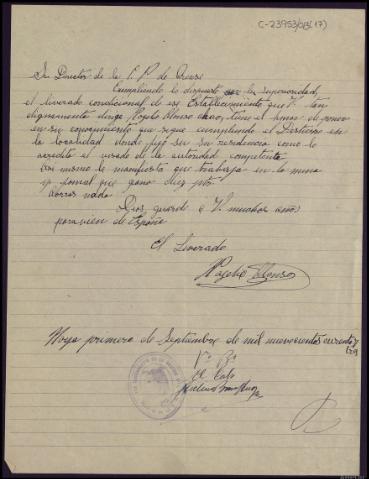 C-23953/013(17)
Sr Director de la P. P. de Orense
Cumpliendo lo dispuesto por la superioridad,
el liverado condicional de ese Establecimiento que V. tan
dignamente dirige Rogelio Alonso tiene el honor de poner
en su conocimiento que sigue cumpliendo el Destierro en
la localidad donde fijó ser su residencia como lo
acredita el visado de la autoridad competente
Asi mismo le manifiesta que trabaja en la mina
y jornal que gana diez pts
aorros nada
Dios guarde a V. muchos años
para vien de España
El Liverado
Rogelio Alonso
primero de Septiembre de mil nuevecientos cuarenta y
Vº Bº
El Cabo